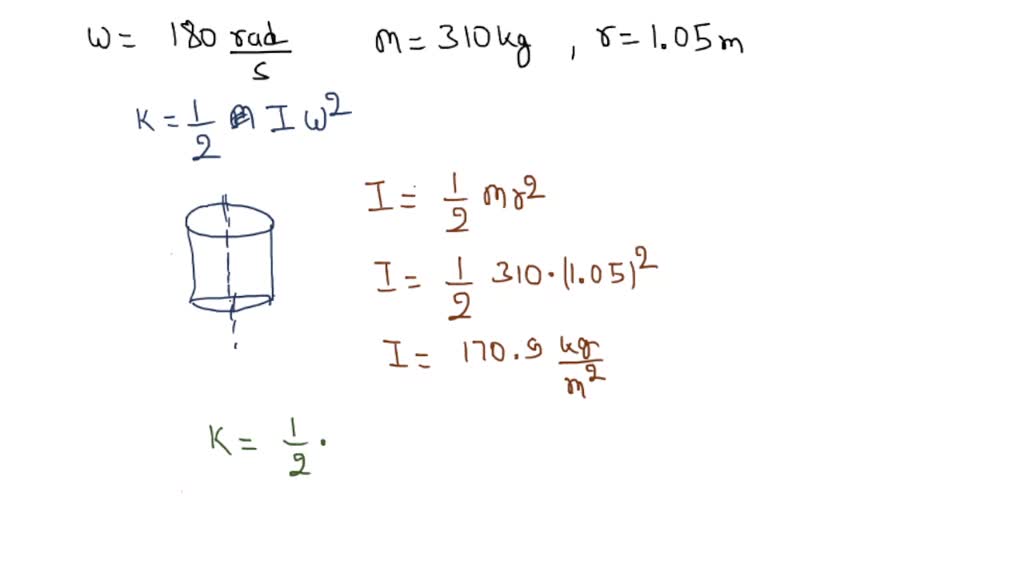 ω = 180 rad/s m = 310 kg , r = 1.05 m
K = 1/2 I ω²
I = 1/2 m r²
I = 1/2 310 · (1.05)²
I = 170.9 kg/m²
K = 1/2 ·